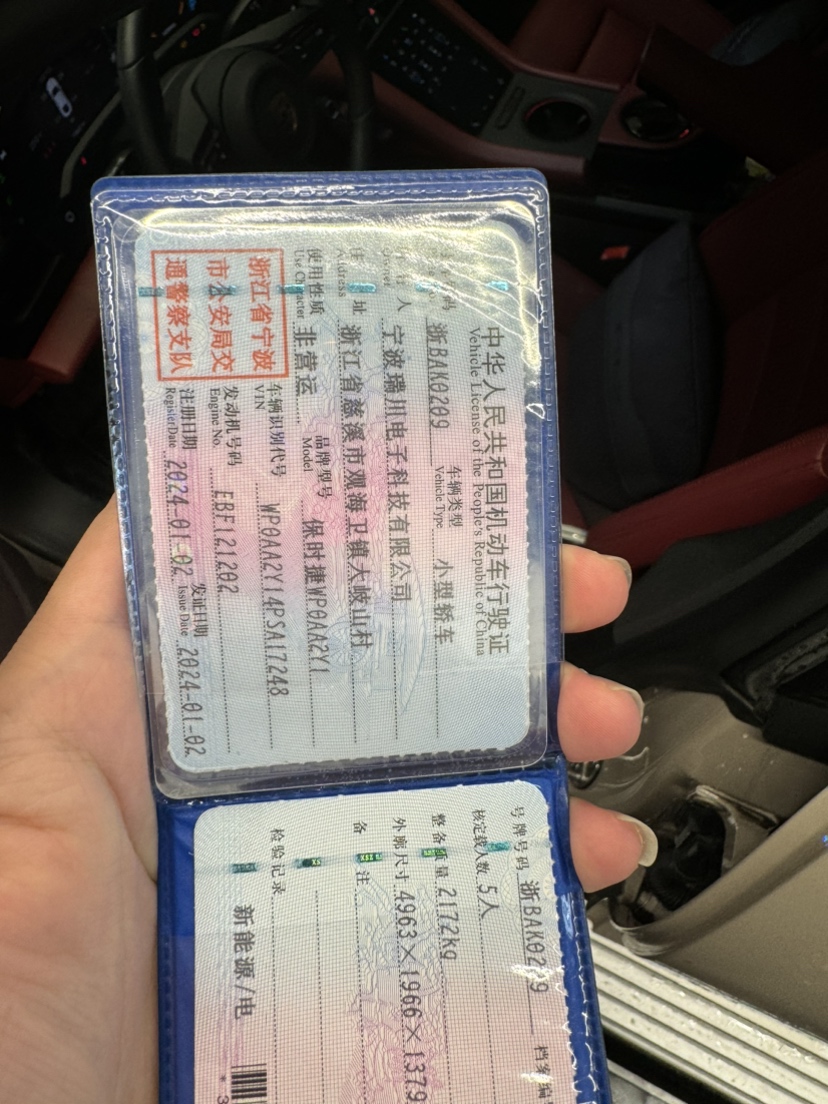 中华人民共和国机动车行驶证
Vehicle License of the People's Republic of China
号码 浙BAK0209 车辆类型 小型轿车
Vehicle Type
人 宁波瑞川电子科技有限公司
Owner
住 址 浙江省慈溪市观海卫镇大岐山村
Address
使用性质 非营运 品牌型号 保时捷WP0AA2Y1
Use Character Model
浙江省宁波
市公安局交
通警察支队
车辆识别代号 WP0AA2Y14PSA17248
VIN
发动机号码 EBF121202
Engine No.
注册日期 2024-01-02 发证日期 2024-01-02
Register Date Issue Date
号牌号码 浙BAK0209 档案编
核定载人数 5人
整备质量 2172kg
外廓尺寸 4963×1966×1379
备 注
检验记录
新能源/电